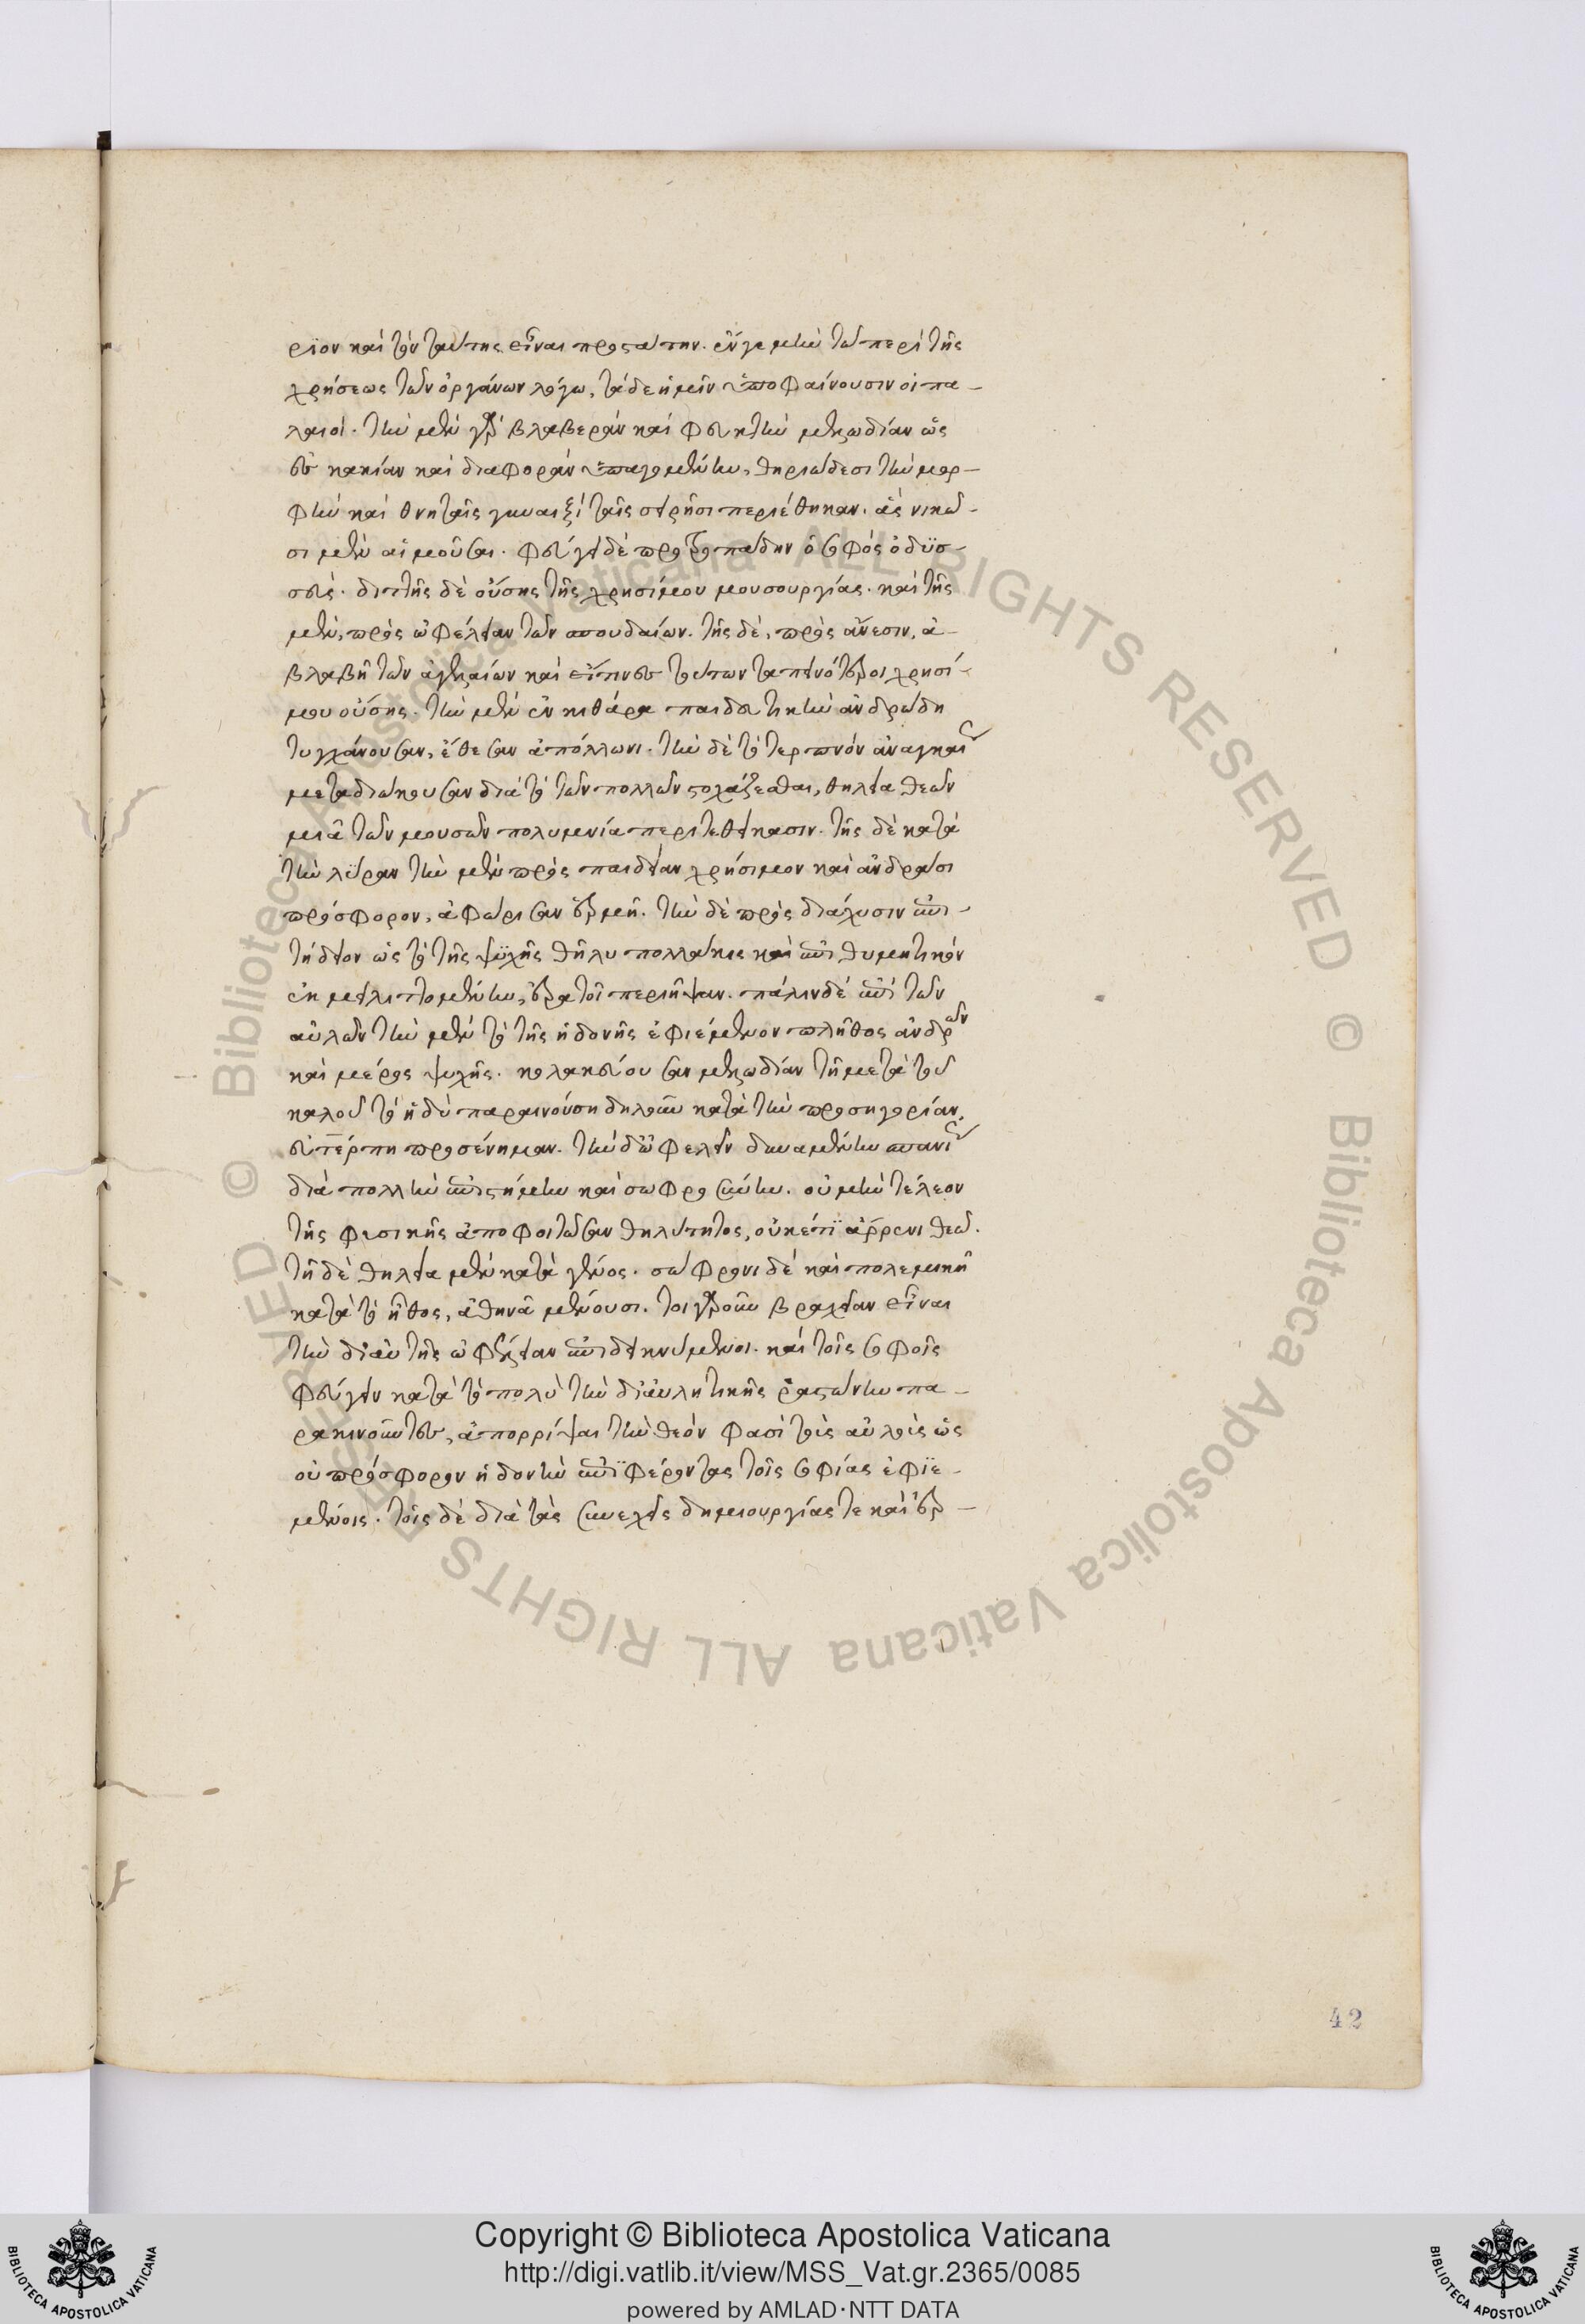 ριον καὶ τὸν ταύτης εἶναι προστάτην. ἔν γε μὴν τῷ περὶ τῆς
χρήσεως τῶν ὀργάνων λόγω, τάδε ἡμῖν ὑποφαίνουσιν οἱ πα-
λαιοί. τὴν μὲν γὰρ βλαβερὰν καὶ φευκτὴν μελωδίαν ὡς
εἰς κακίαν καὶ διαφορὰν ὑπαγομένην, θηριώδεσι τὴν μορ-
φὴν καὶ θνηταῖς γυναιξὶ ταῖς σειρῆσι περιέθηκαν. ἃς νικῶ-
σι μὲν αἱ μοῦσαι. φεύγει δὲ προτροπάδην ὁ σοφὸς ὀδυσ-
σεύς. διττῆς δὲ οὔσης τῆς χρησίμου μουσουργίας. καὶ τῆς
μὲν, πρὸς ὠφέλειαν τῶν σπουδαίων. τῆς δὲ, πρὸς ἄνεσιν, ἀ-
βλαβῆ τῶν ἀγελαίων καὶ εἴ τινες τούτων ταπεινότεροι χρησί-
μου οὔσης. τὴν μὲν ἐν κιθάρα παιδευτικὴν ἀνδρώδη
τυγχάνουσαν, ἔθεσαν ἀπόλλωνι. τὴν δὲ τὸ τερπνὸν ἀναγκαί
μεταδιώκουσαν διὰ τὸ τῶν πολλῶν στοχάζεσθαι, θηλεία θεῶν
μιᾶ τῶν μουσῶν πολυμνία περιτεθείκασιν. τῆς δὲ κατὰ
τὴν λύραν τὴν μὲν πρὸς παιδείαν χρήσιμον καὶ ἀνδράσι
πρόσφορον, ἀφώρισαν ἑρμῆ. τὴν δὲ πρὸς διάχυσιν ἐπι-
τήδειον ὡς τὸ τῆς ψυχῆς θῆλυ πολλάκις καὶ ἐπιθυμητικὸν
ἐκμειλιττομένην, ἐρατοῖ περιῆψαν. πάλιν δὲ ἐπὶ τῶν
αὐλῶν τὴν μὲν τὸ τῆς ἡδονῆς ἐφιέμενον πλῆθος ἀνδρῶν
καὶ μέρος ψυχῆς. κολακεύουσαν μελωδίαν τῆ μετὰ τοῦ
καλοῦ τὸ ἡδὺ παραινούση δηλοῦν κατὰ τὴν προσηγορίαν,
εὐτέρπη προσένημαν. τὴν δ' ὠφελεῖν δυναμένην σπανί
διὰ πολλὴν ἐπιστήμην καὶ σωφροσύνην. οὐ μὴν τέλεον
τῆς φυσικῆς ἀποφοιτῶσαν θηλύτητος, οὐκέτι ἄρρενι θεῶ.
τῆ δὲ θηλεία μὲν κατὰ γένος. σώφρονι δὲ καὶ πολεμικῆ
κατὰ τὸ ἦθος, ἀθηνᾶ μένουσι. τοιγαροῦν βραχεῖαν εἶναι
τὴν δι' αὐτῆς ὠφέλειαν ἐπιδεικνύμενοι. καὶ τοῖς σοφοῖς
φεύγειν κατὰ τὸ πολὺ τὴν δι' αὐλητικῆς ῥαστώνην πα-
ραινοῦντες, ἀπορρίψαι τὴν θεόν φασὶ τοὺς αὐλοὺς ὡς
οὐ πρόσφορον ἡδονὴν ἐπιφέροντας τοῖς σοφίας ἐφιε-
μένοις. τοῖς δὲ διὰ τὰς συνεχεῖς δημιουργίας τε καὶ ἐρ-
42
Copyright © Biblioteca Apostolica Vaticana
http://digi.vatlib.it/view/MSS_Vat.gr.2365/0085
powered by AMLAD·NTT DATA